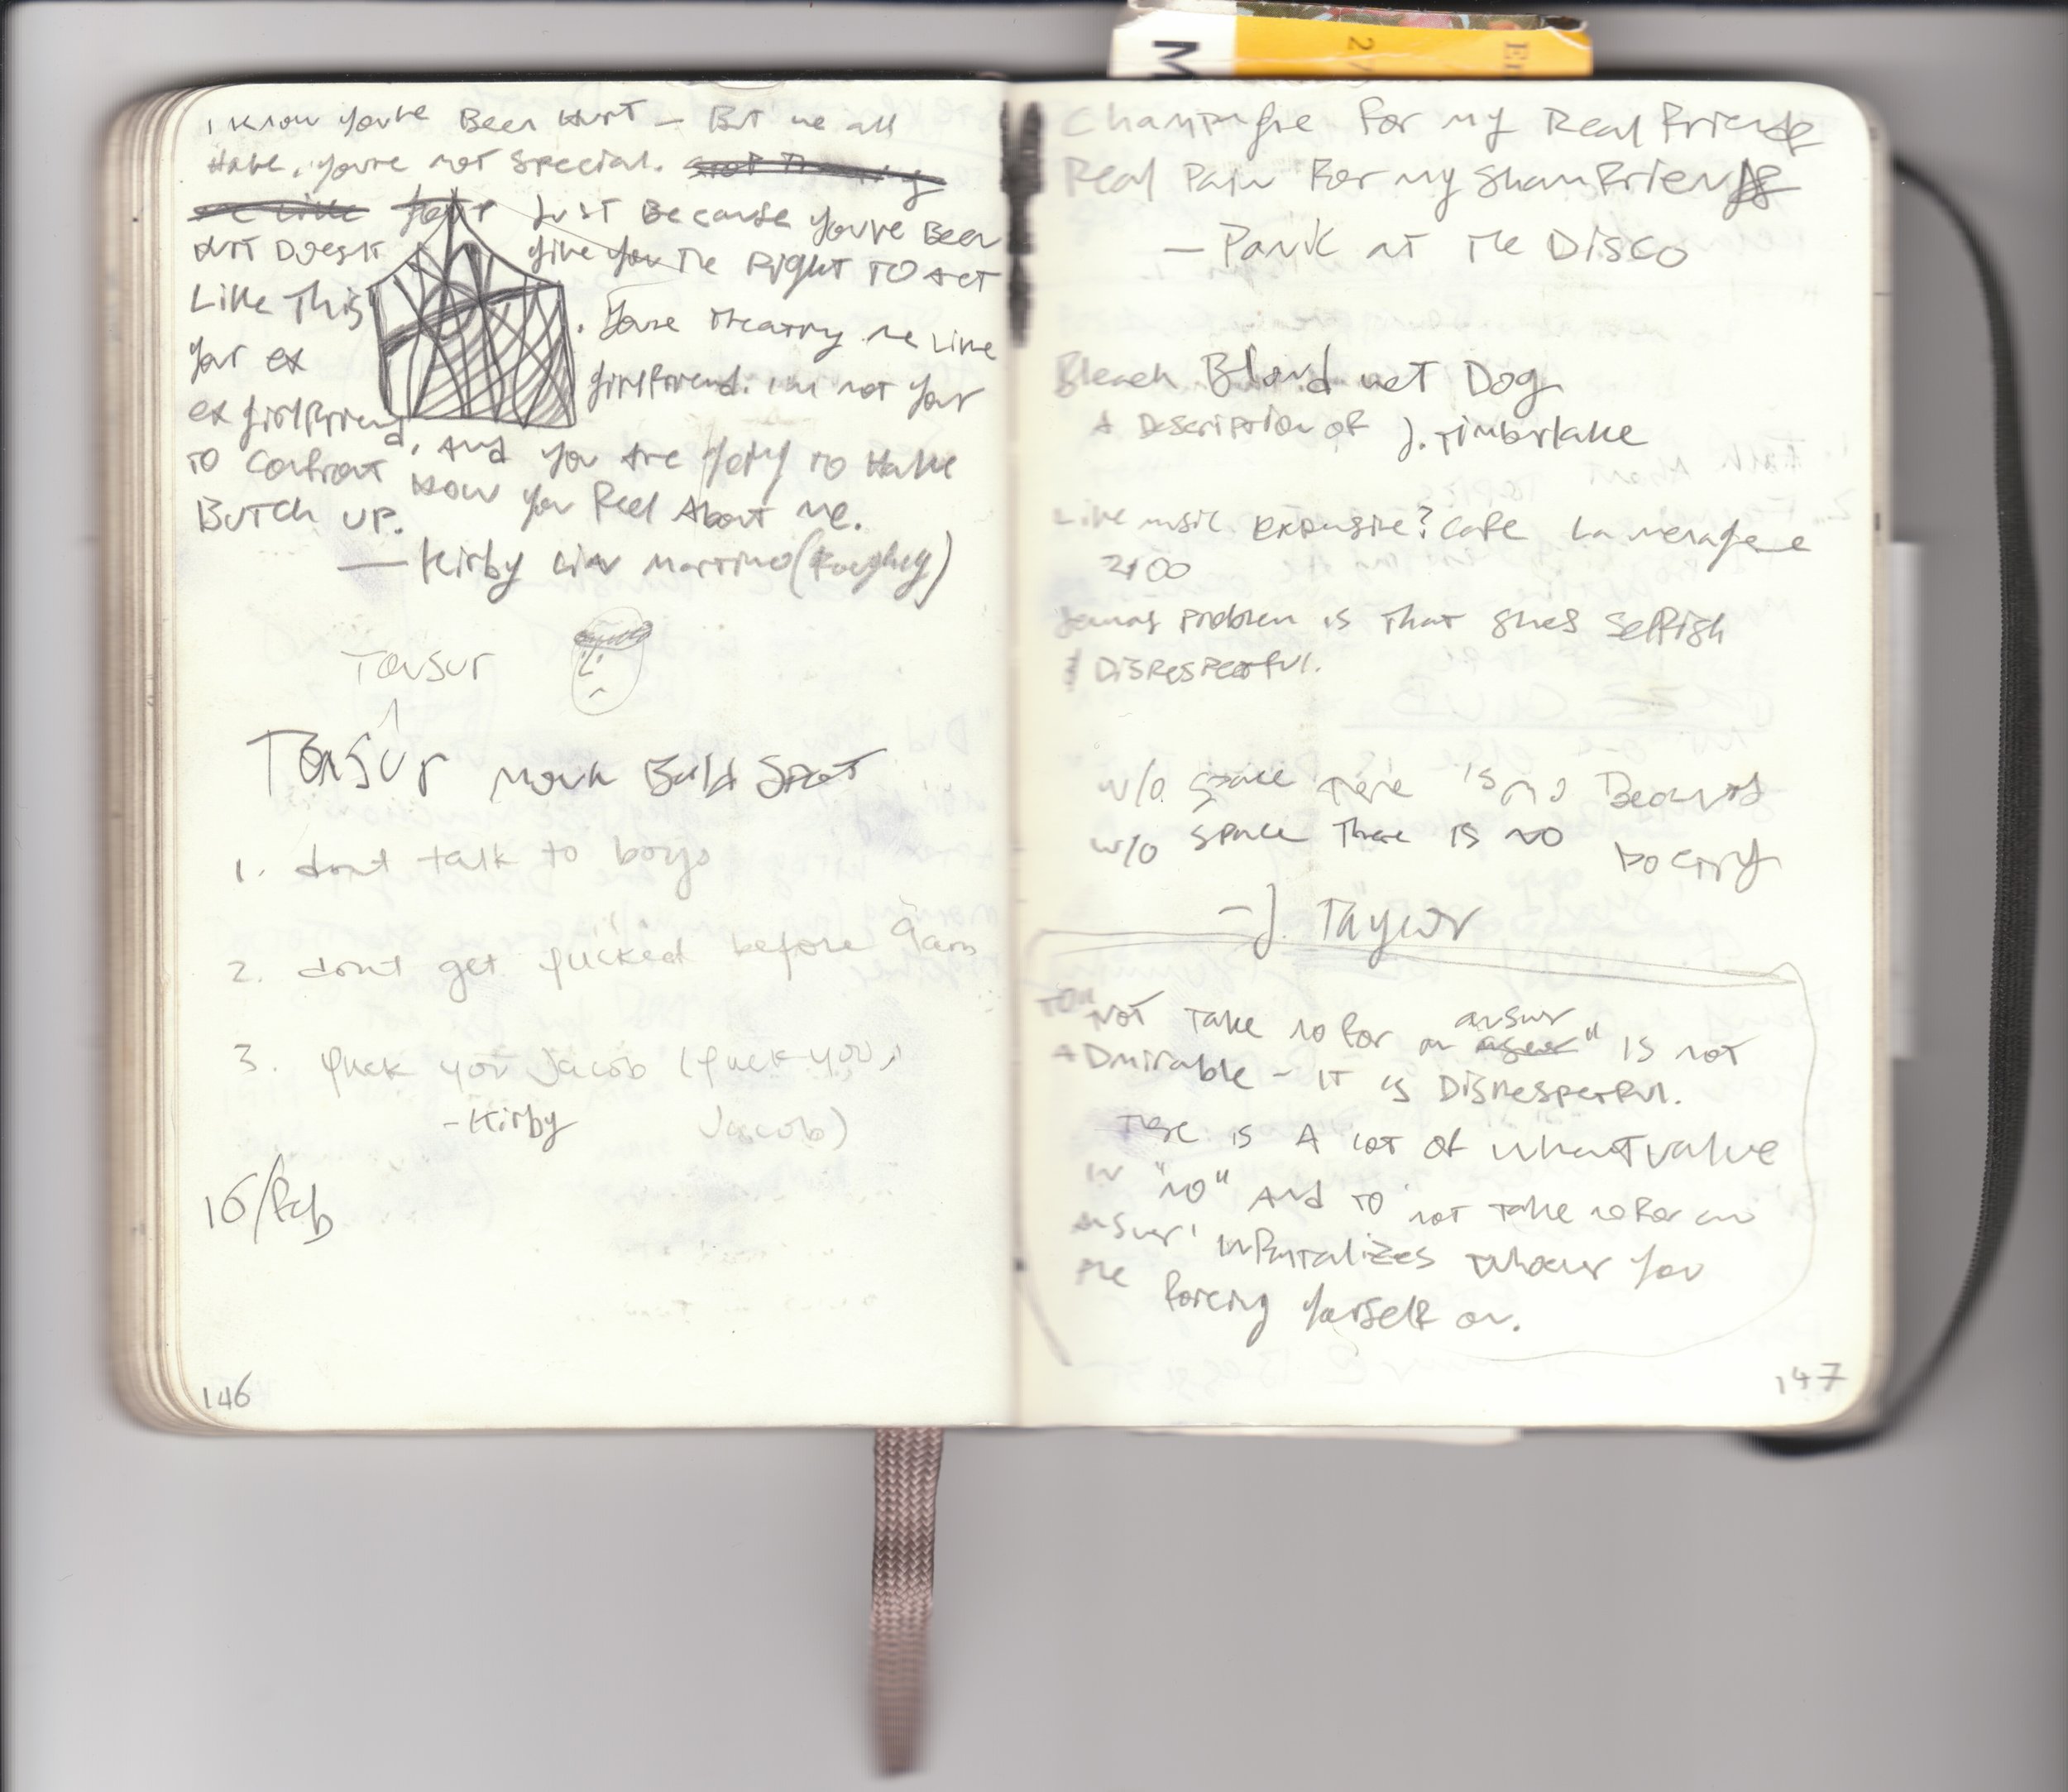 I know you've Been Hurt – But we all
Have, you're not special.
Just Because you've Been
Hurt Doesn't give you the Right TO Act
Like This. You're treating me Like
your ex girlfriend. I'm not your
ex girlfriend, And you are going to Have
TO Confront How you feel About me.
BUTCH UP.
— Kirby Martino (
Tonsur
Tonsur Monk Bald Spot
1. dont talk to boys
2. dont get fucked before 9am
3. fuck you Jacob (fuck you,
Jacob)
- Kirby
16/feb
146
M
2
Champagne for my Real friends
Real Pain for my Sham friends
— Panic at the Disco
Bleach Blond wet Dog
A Description of J. Timberlake
Live music expensive? Cafe
2100
problem is that shes selfish
& Disrespectful.
w/o space there is no Beauty
w/o space there is no Poetry
- J. Taylor
To "Not Take no for an answr" is not
ADmirable - IT is Disrespectful.
There is A lot of value
in "no" And to 'not take no for an
answr' whoever you
are forcing yourself on.
147